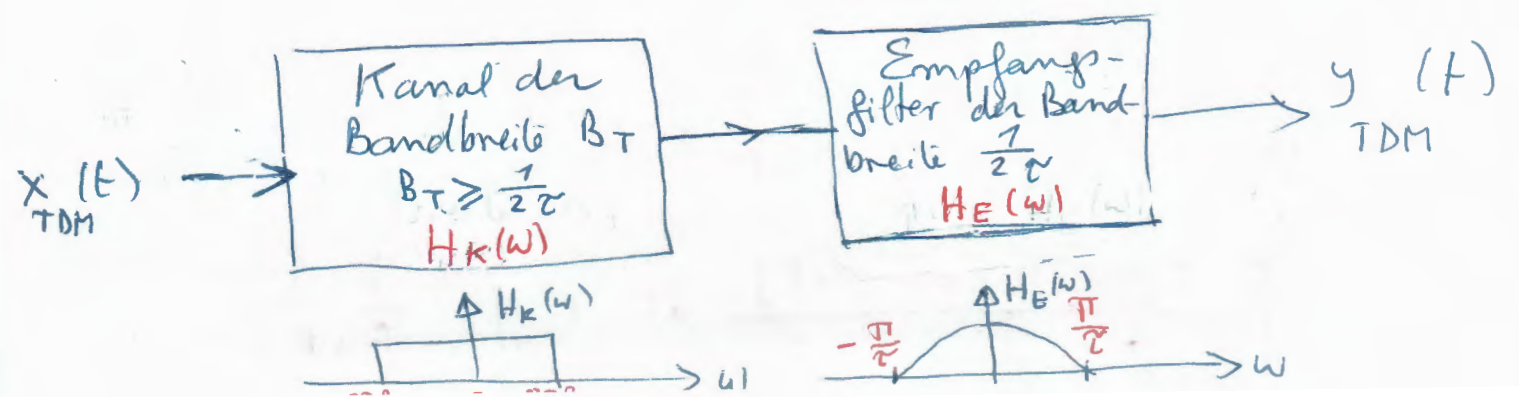 Kanal der
Bandbreite B_T
B_T ≥ 1/2τ
H_K(ω)
Empfangs-
filter der Band-
breite 1/2τ
H_E(ω)
x_TDM(t)
y_TDM(t)
H_K(ω)
ω
H_E(ω)
-π/τ
π/τ
ω